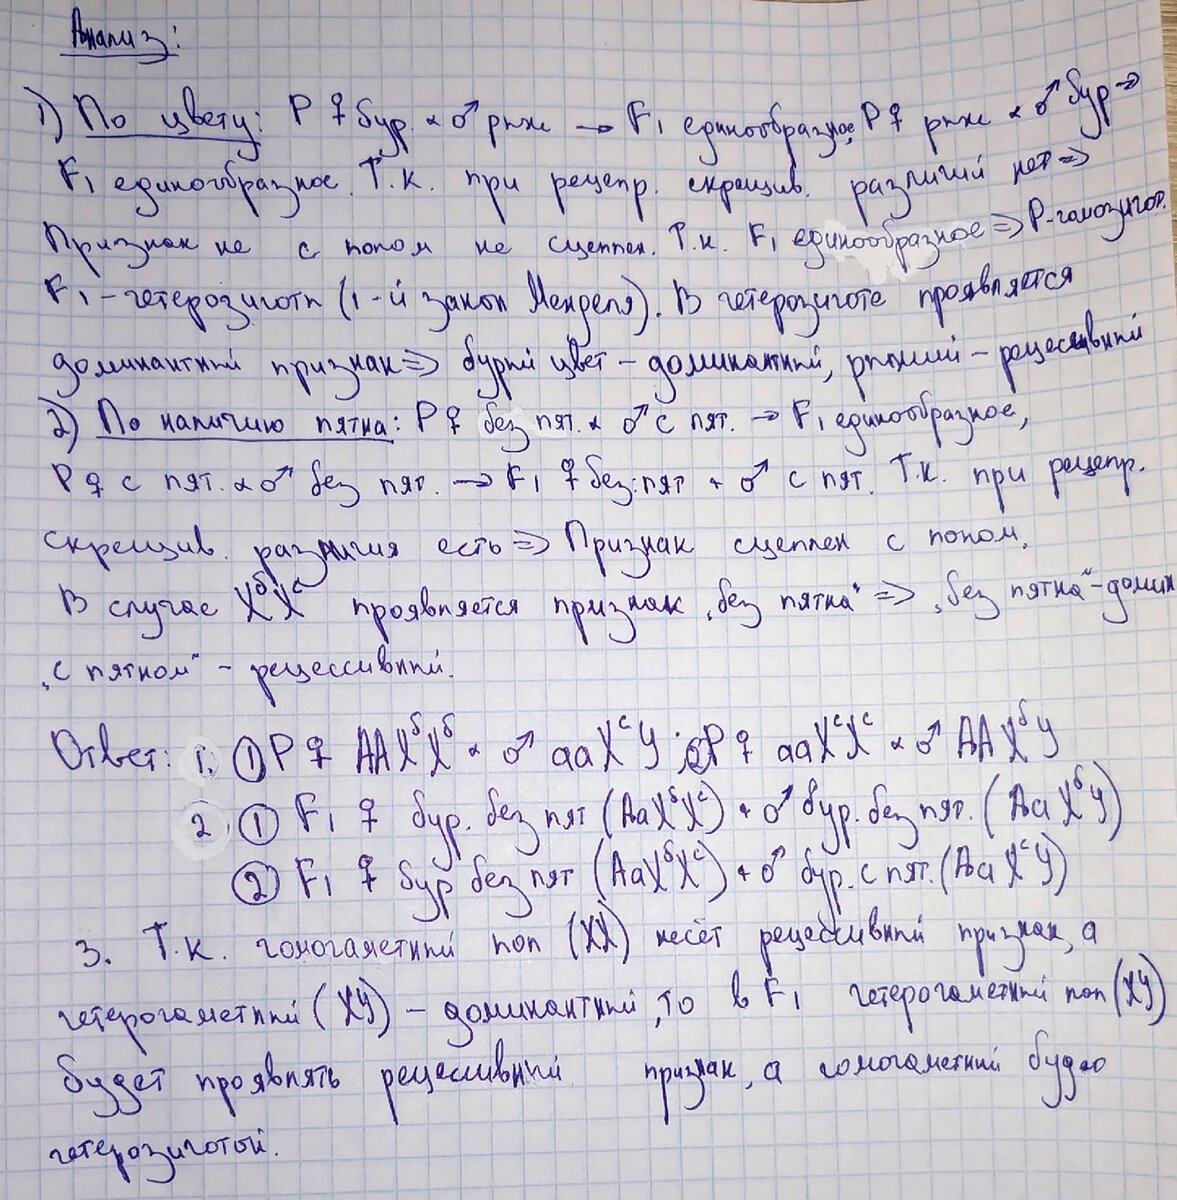 Анализ:
1) По цвету: Р ♀ бур. × ♂ рыж → F₁ единообразное, Р ♀ рыж × ♂ бур →
F₁ единообразное. Т.к. при рецепр. скрещив. различий нет ⇒
Признак не с полом не сцеплен. Т.к. F₁ единообразное ⇒ Р-гомозигот.
F₁ - гетерозиготы (1-й закон Менделя). В гетерозиготе проявляется
доминантный признак ⇒ бурый цвет - доминантный, рыжий - рецессивный
2) По наличию пятна: Р ♀ без пят. × ♂ с пят. → F₁ единообразное,
Р ♀ с пят. × ♂ без пят. → F₁ ♀ без пят + ♂ с пят. Т.к. при рецепр.
скрещив. различия есть ⇒ Признак сцеплен с полом.
В случае XᵟXᶜ проявляется признак „без пятна" ⇒ „без пятна" - домин
„с пятном" - рецессивный.
Ответ: 1. ① Р ♀ AAXᵟXᵟ × ♂ aaXᶜY; ② Р ♀ aaXᶜXᶜ × ♂ AAXᵟY
2. ① F₁ ♀ бур. без пят (AaXᵟXᶜ) + ♂ бур. без пят. (AaXᵟY)
② F₁ ♀ бур без пят (AaXᵟXᶜ) + ♂ бур. с пят. (AaXᶜY)
3. Т.к. гомогаметный пол (XX) несёт рецессивный признак, а
гетерогаметный (XY) - доминантный, то в F₁ гетерогаметный пол (XY)
будет проявлять рецессивный признак, а гомогаметный
гетерозиготой.